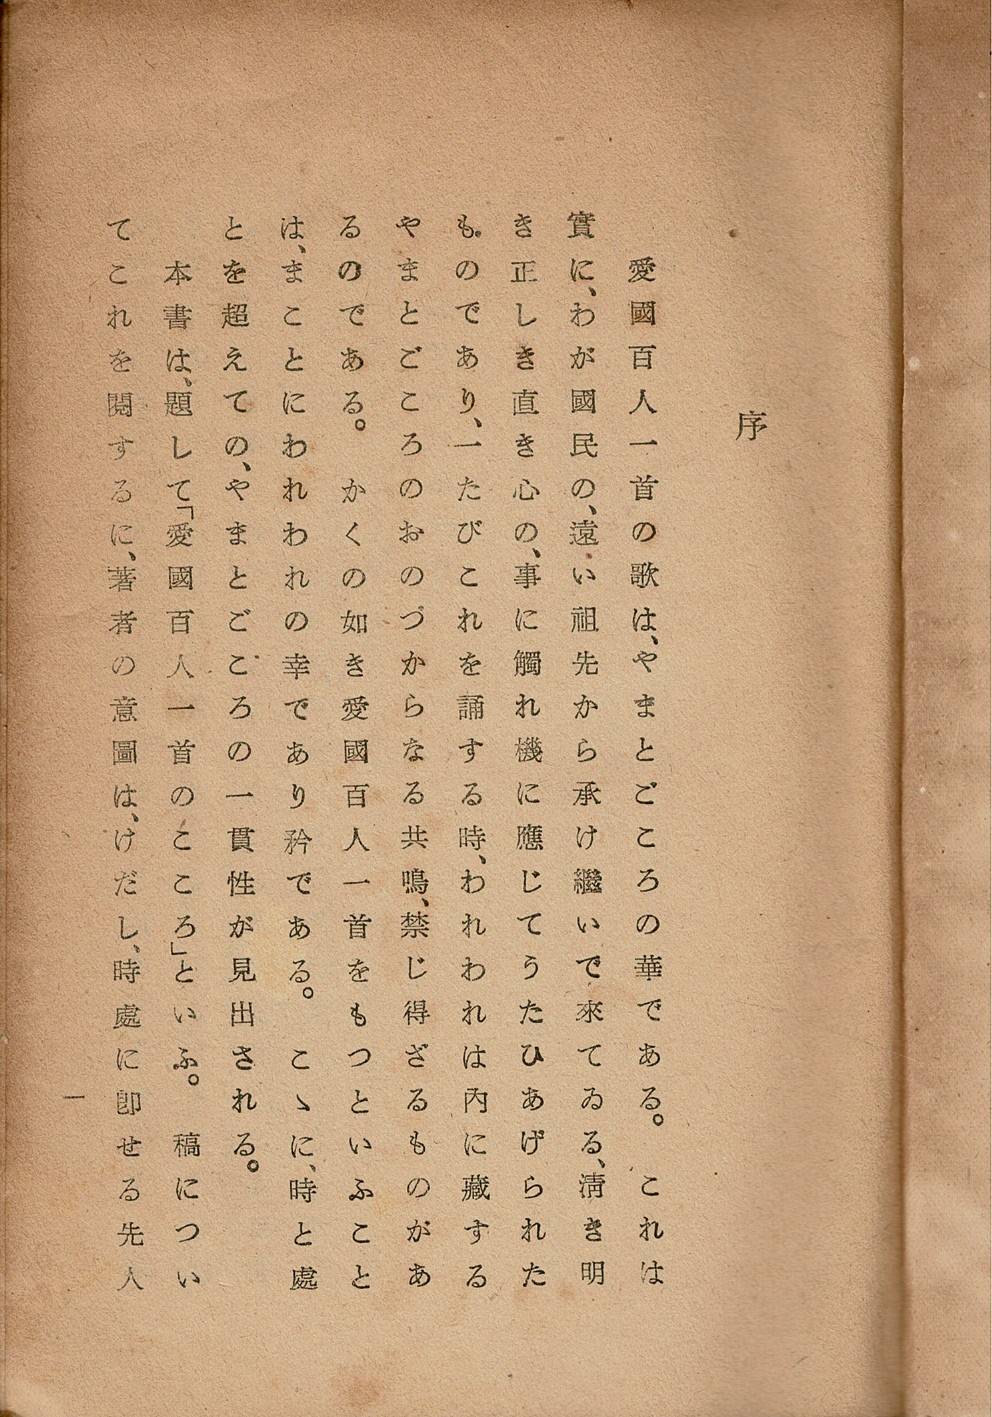 序
愛國百人一首の歌は、やまとごころの華である。これは
實に、わが國民の、遠い祖先から承け繼いで來てゐる、淸き明
き正しき直き心の、事に觸れ機に應じてうたひあげられた
ものであり、一たびこれを誦する時、われわれは內に藏する
やまとごころのおのづからなる共鳴、禁じ得ざるものがあ
るのである。かくの如き愛國百人一首をもつといふこと
は、まことにわれわれの幸であり矜である。こゝに、時と處
とを超えての、やまとごころの一貫性が見出される。
本書は、題して「愛國百人一首のこころ」といふ。稿につい
てこれを閱するに、著者の意圖は、けだし、時處に卽せる先人
一